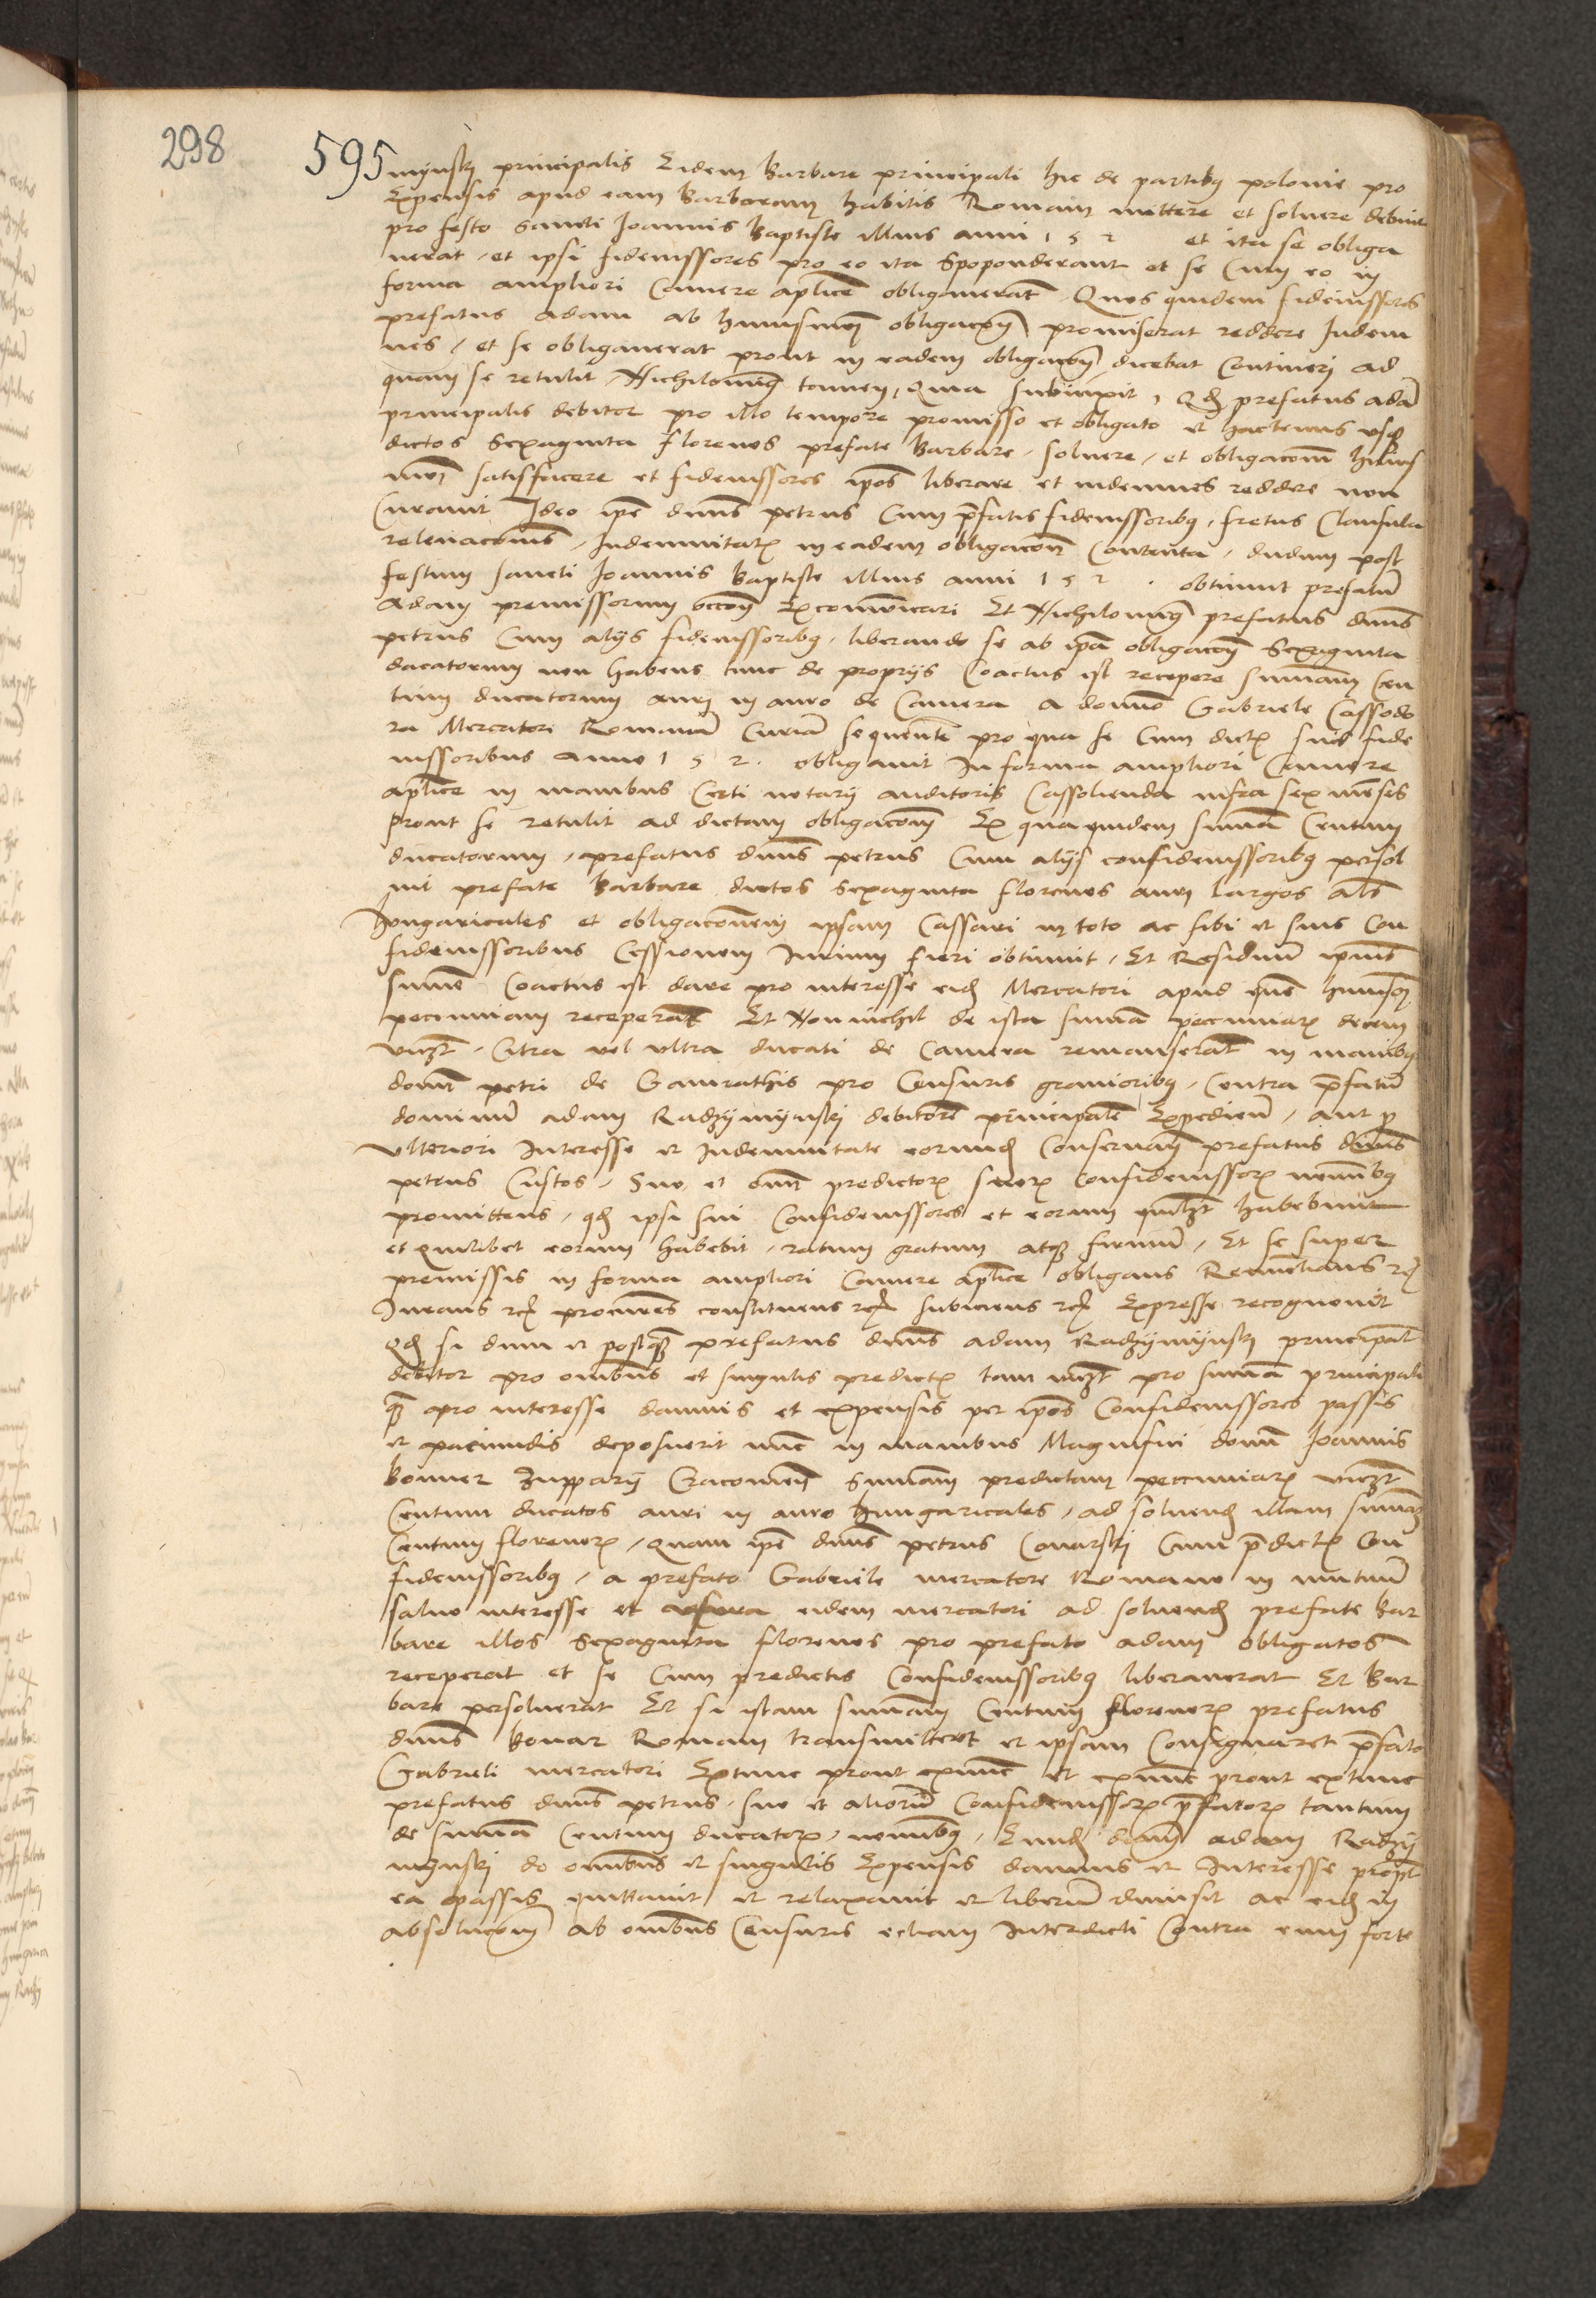 298
595 mijnski principalis Eidem Barbare principali hic de partibus polonie pro
Expensis apud eam Barboram habitis Romam mittere et soluere debuit
pro festo Sancti Joannis Baptiste illius anni 1 5 2 et ita se obliga
uerat, et ipsi fideiussores pro eo ita Spoponderant et se Cum eo in
forma ampliori Camere aplice obligauerat. Quos quidem fideiussores
prefatus adam ab huiusmoi obligacone promiserat reddere Indem
nes, et se obligauerat prout in eadem obligacone dicebat Contineri ad
quam se retulit. Nichilominus tamen, Quia subiunxit, Qd prefatus ada
principalis debitor pro illo tempore promisso et obligato et hactenus vsq
dictos Sexaginta florenos prefate Barbare, soluere, et obligacom huius
moi satisfacere et fideiussores ipos liberare et indemnes reddere non
Curauit Ideo ipe dnus petrus Cum pfatis fideiussoribus, fretus Clausula
releuaconis, Indemnitatis in eadem obligacone Contenta, dudum post
festum sancti Joannis Baptiste illius anni 1 5 2 . obtinuit prefatu
Adam premissorum occone Excomunicari Et Nichilominus prefatus dnus
petrus Cum alijs fideiussoribus, liberando se ab ipa obligacone Sexaginta
ducatorum non habens tunc de proprijs Coactus est recepere summam Cen
tum ducatorum auri in auro de Camera a domno Gabriele Cassodo
ra Mercatori Romana Curia sequente pro qua se Cum dictis suis fide
iussoribus anno 1 5 2 . obligauit In forma ampliori Camere
aplice in manibus Certi notarij auditoris Cassolienda infra sex menses
prout se retulit ad dictam obligacom Ex qua quidem suma Centum
ducatorum, prefatus dnus petrus Cum alijs confideiussoribus persol
uit prefate Barbare dictos sexaginta florenos auri largos als
hungaricales et obligaconem ipsam Cassari in toto ac sibi et suis Con
fideiussoribus Cessionem Iurium fieri obtinuit, Et Residuum ipius
sume Coactus est dare pro interesse eid Mercatori apud que huiusmoi
pecuniam receperat Et Nonnichil de ista suma pecuniar decem
vidzt, Citra vel vltra ducati de Camera remanserat in manibus
domni petri de Gamrathis pro Censuris grauioribus, Contra pfatu
dominu adam Radzijmijnski debitore principale Expediend, aut p
Vlteriori Interesse et Indemnitate eorund Conseruand prefatus dnus
petrus Custos, Suo, et omn predictor suor Confideiussor nominibus
promittens, qd ipsi sui Confideiussores et eorum quilzt habebunt
et quilibet eorum habebit, ratum gratum atq firmu, Et se super
premissis in forma ampliori Camere aplice obligans Renuncians etc
Iurans etc procures constituens etc subiciens etc Expresse recognouit
Qd si dum et postq prefatus dnus adam Radzijmijnski principal
debitor pro omibus et singulis predictis tam vidzt pro suma principali
q pro interesse damnis et expensis per ipos Confideiussores passis
et paciundis deposuerit nunc in manibus Magnifici domni Joannis
bonner Zupparij Cracouien Sumam predictam pecuniar vidzt
Centum ducatos auri in auro Hungaricales, ad soluend illam suma
Centum florenor, quam ipe dnus petrus Conarski Cum pdictis Con
fideiussoribus, a prefato Gabriele mercatore Romano in mutuu
saluo interesse et eidem mercatori ad soluend prefate Bar
bare illos Sexaginta florenos pro prefato adam obligatos
receperat et se Cum predictis Confideiussoribus liberauerat Et Bar
bare persoluerat Et si istam sumam Centum florenor prefatus
dnus Bonar Romam transmitteret et ipsam Consignaret pfato
Gabrieli mercatori Extunc prout exnunc et exnunc prout extunc
prefatus dnus petrus, suo et aliorum Confideiussor pfator tantum
de suma Centum ducator, nominibus, Eund dnum adam Radzij
mijnski de omnibus et singulis Expensis damnis et Interesse propt
ea passis quittauit et relaxauit et liberu dimisit ac eid in
absolucom ab omibus Censuris etiam Interdicti Contra eum forte